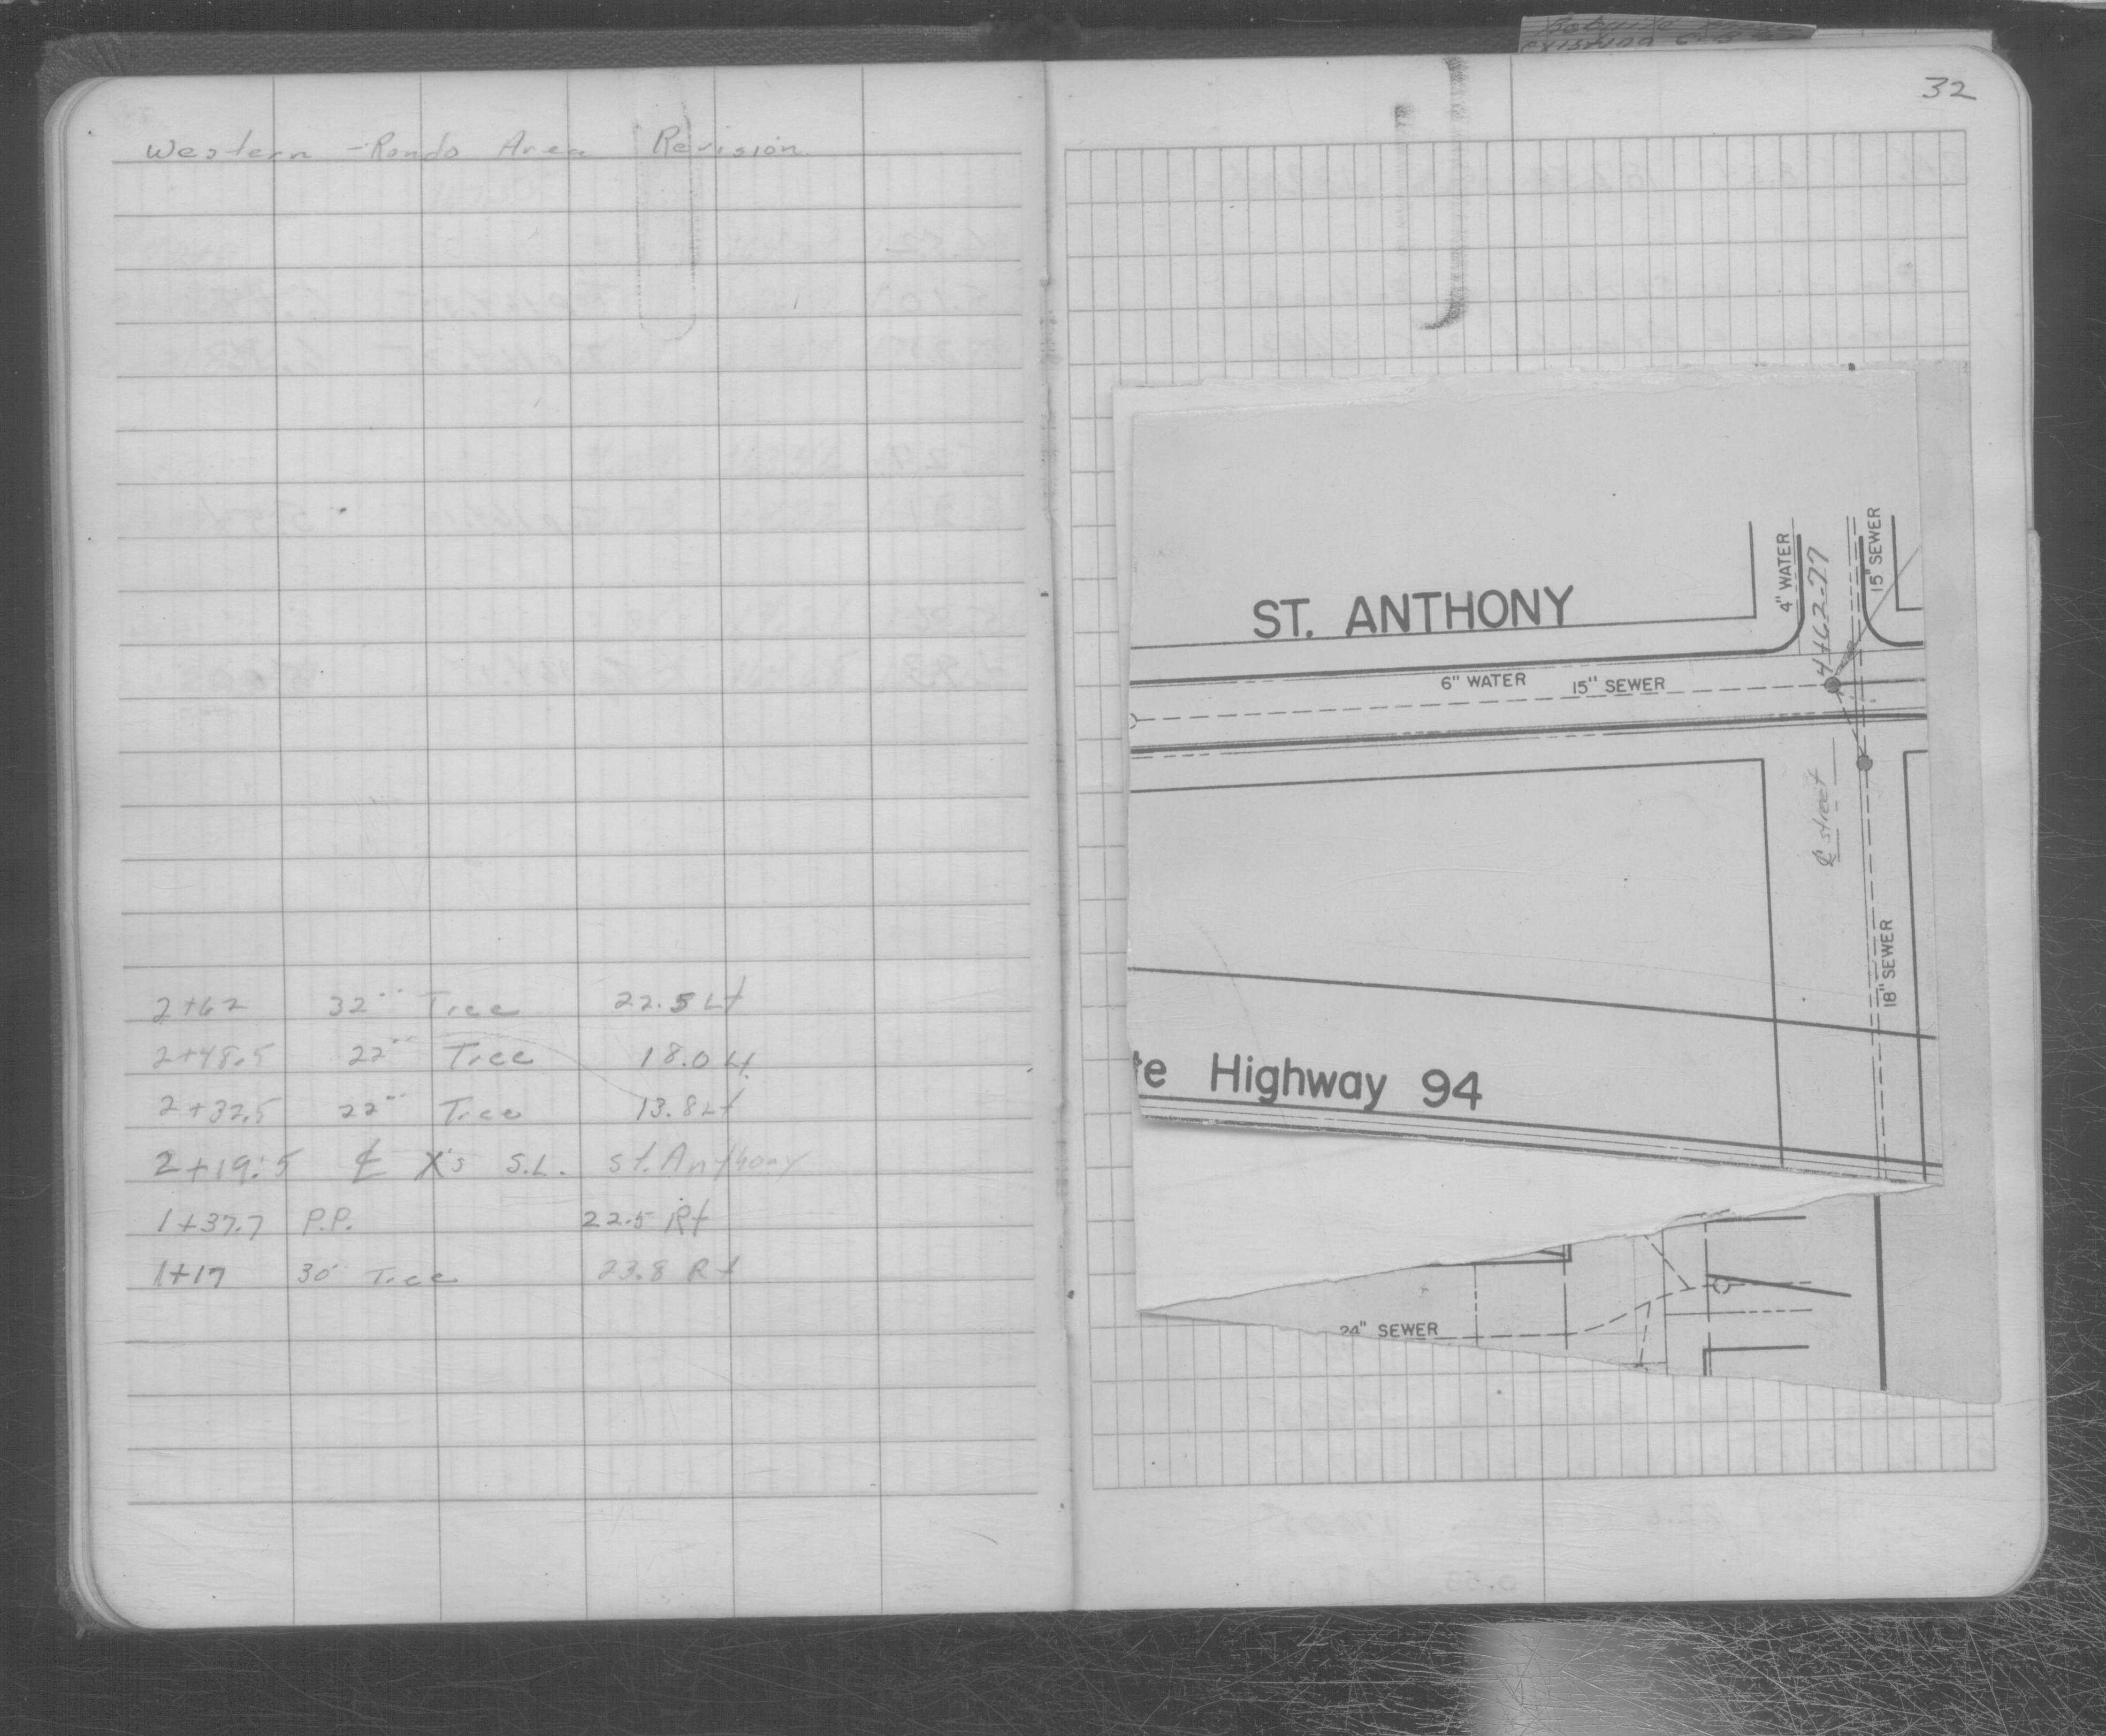 Western - Rondo Area Revision
2+62 32" Tree 22.5 Lt
2+48.5 22" Tree 18.0 Lt
2+32.5 22" Tree 13.8 Lt
2+19.5 ℄ X's S.L. St. Anthony
1+37.7 P.P. 22.5 Rt
1+17 30" Tree 23.8 Rt
32
ST. ANTHONY
4" WATER
4+62.77
15" SEWER
6" WATER 15" SEWER
℄ street
18" SEWER
te Highway 94
24" SEWER